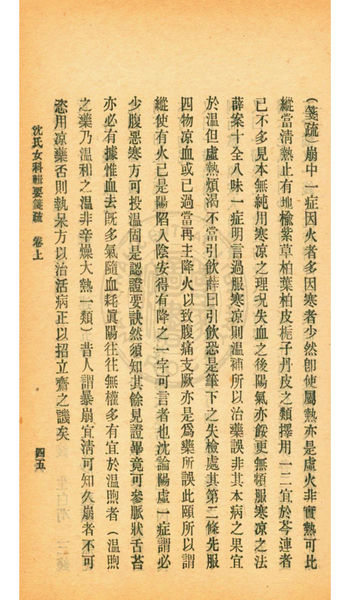 （箋疏）崩中一症因火者多因寒者少然卽使屬熱亦是虛火非實熱可比
縱當淸熱止有地楡紫草柏葉柏皮梔子丹皮之類擇用一二宜於芩連者
已不多見本無純用寒凉之理況失血之後陽氣亦餒更無頻服寒凉之法
薛案十全八味一症明言過服寒凉則溫補所以治藥誤非其本病之果宜
於溫但虛熱煩渴不當引飲薛曰引飲恐是筆下之失檢處其第二條先服
四物凉血或已過當再主降火以致腹痛支厥亦是爲藥所誤此頤所以謂
縱使有火已是陽陷入陰安得有降之一字可言者也沈論陽虛一症謂必
少腹惡寒方可投溫固是認證要訣然須知其餘見證畢竟可參脈狀舌苔
亦必有據惟血去旣多氣隨血耗眞陽往往無權多有宜於溫煦者（溫煦
之藥乃溫和之溫非辛燥大熱一類）昔人謂暴崩宜淸可知久崩者不可
恣用凉藥否則執呆方以治活病正以招立齋之譏矣
沈氏女科輯要箋疏　卷上
四五